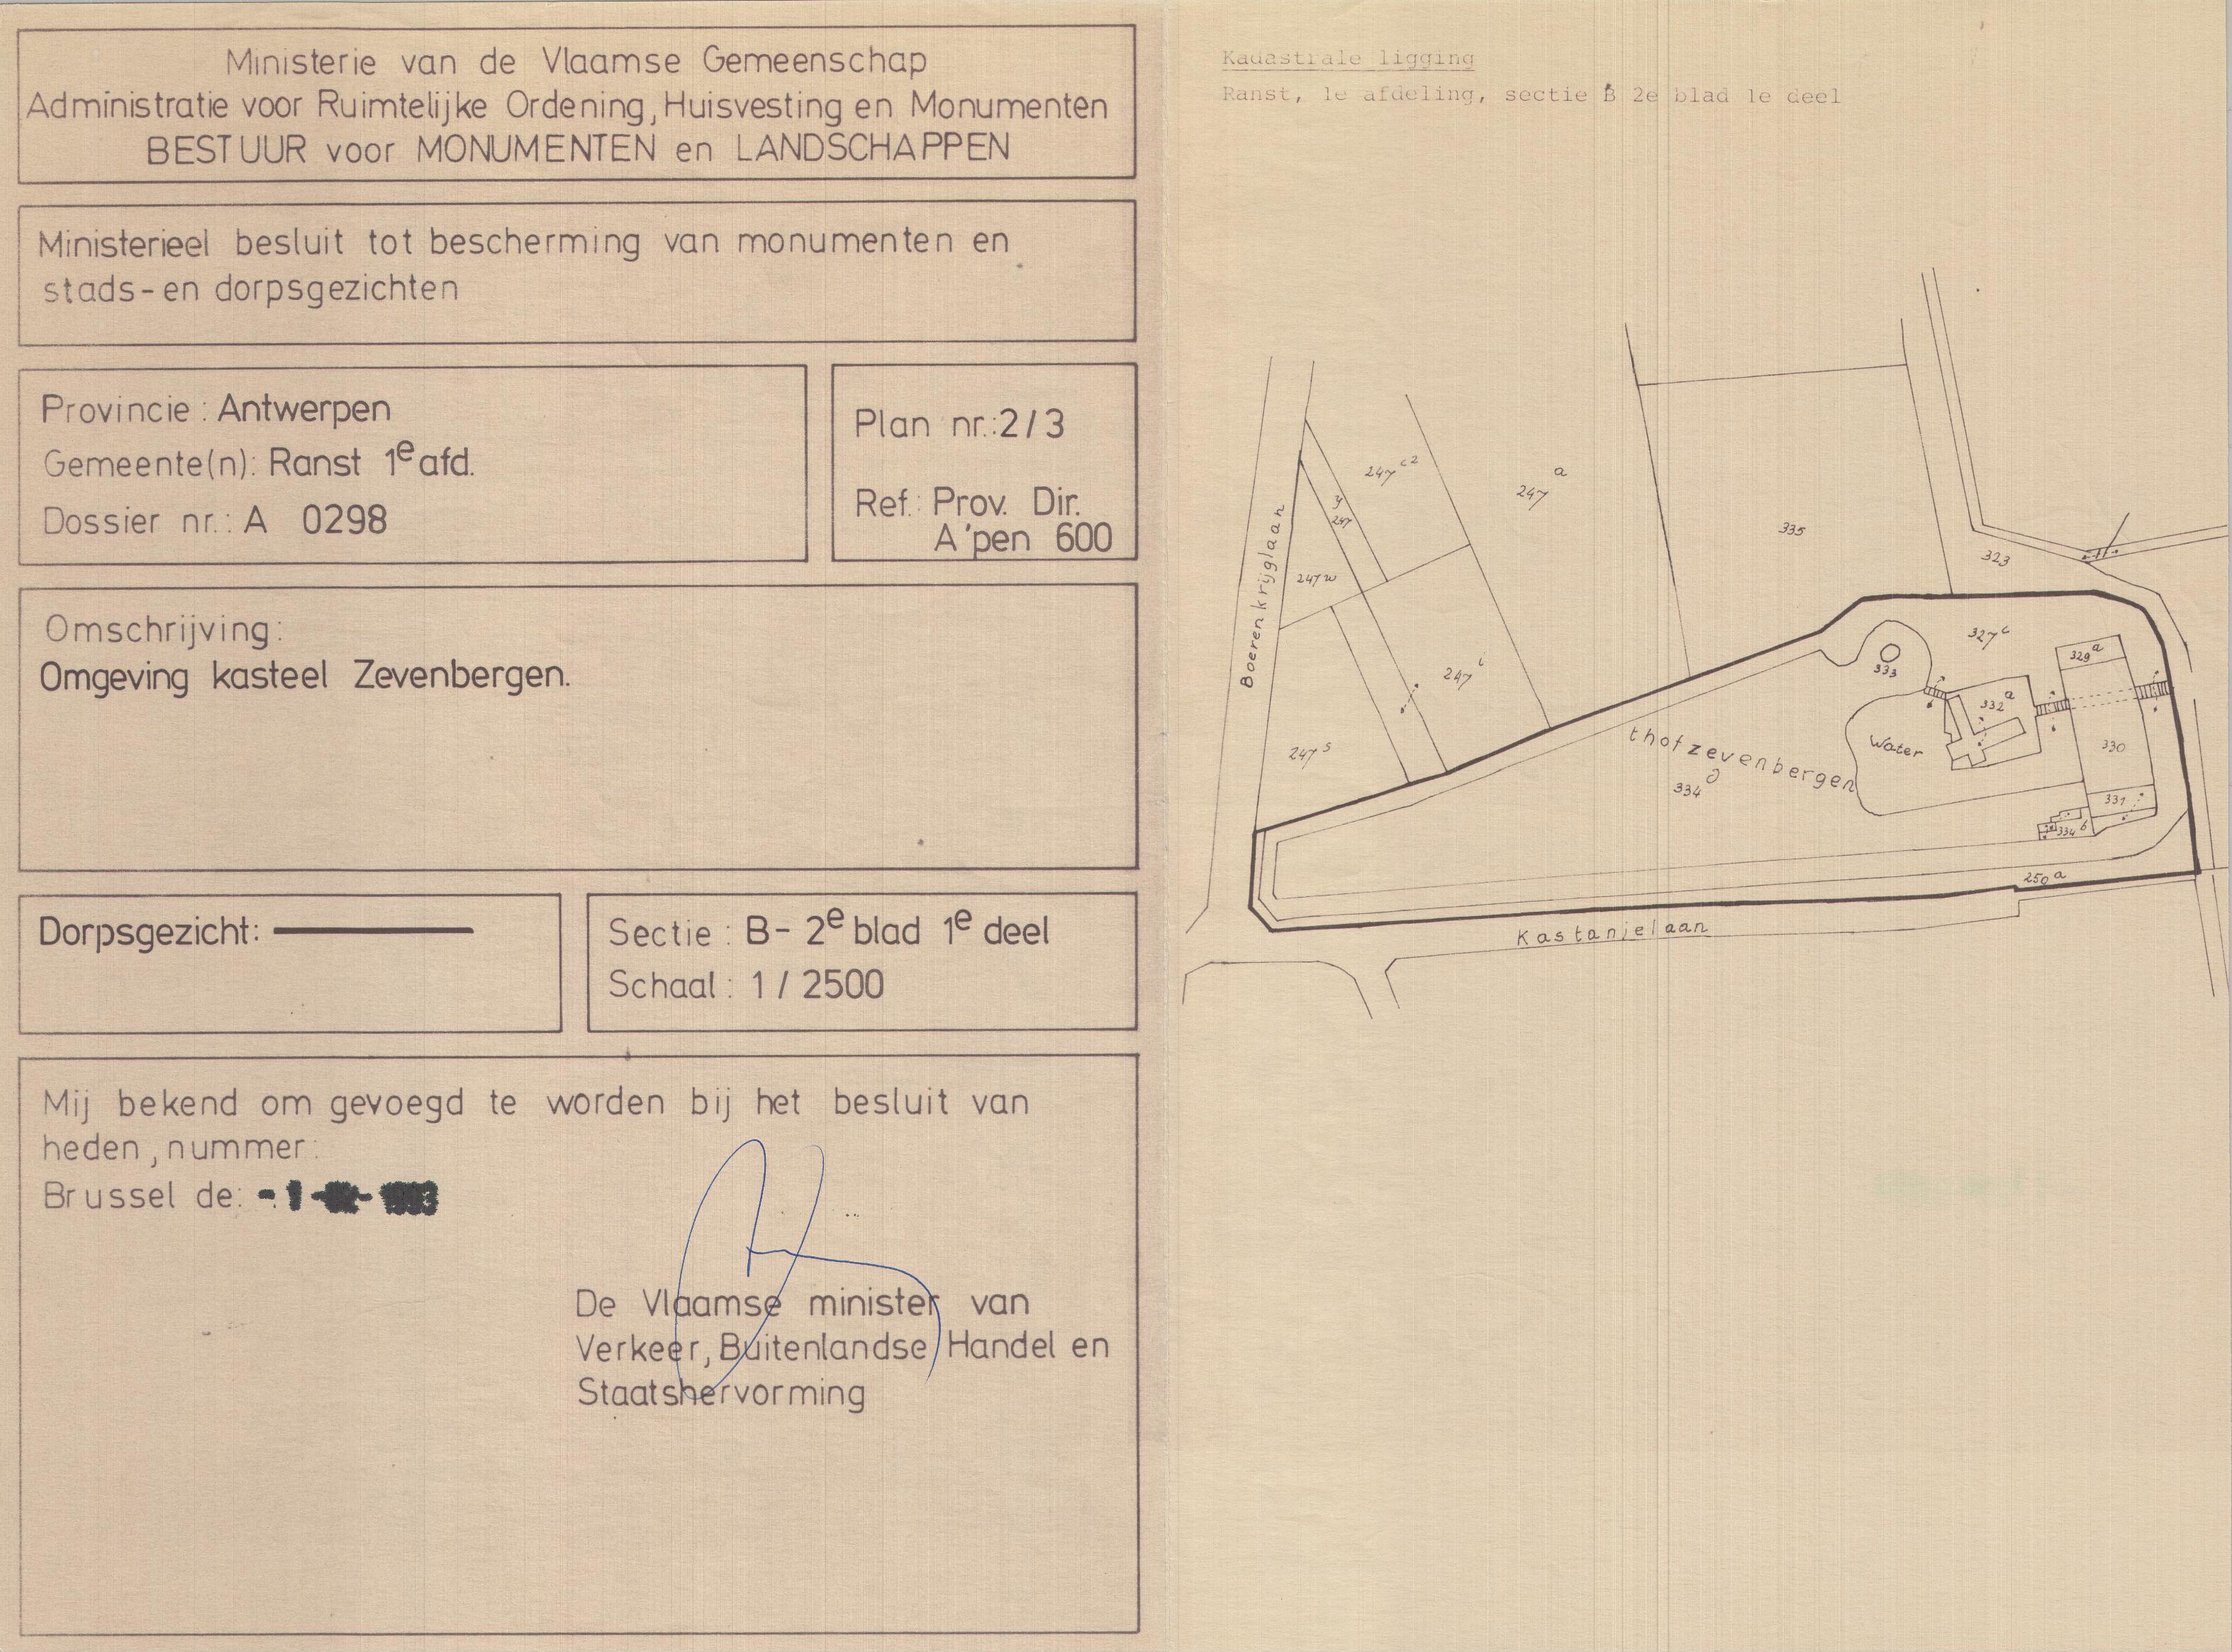 Ministerie van de Vlaamse Gemeenschap
Administratie voor Ruimtelijke Ordening, Huisvesting en Monumenten
BESTUUR voor MONUMENTEN en LANDSCHAPPEN
Ministerieel besluit tot bescherming van monumenten en
stads-en dorpsgezichten
Provincie: Antwerpen
Gemeente(n): Ranst 1e afd.
Dossier nr.: A 0298
Plan nr.: 2/3
Ref.: Prov. Dir.
A'pen 600
Omschrijving:
Omgeving kasteel Zevenbergen.
Dorpsgezicht:
Sectie: B- 2e blad 1e deel
Schaal: 1/2500
Mij bekend om gevoegd te worden bij het besluit van
heden, nummer:
Brussel de: -1-02-1993
De Vlaamse minister van
Verkeer, Buitenlandse Handel en
Staatshervorming
Kadastrale ligging
Ranst, 1e afdeling, sectie B 2e blad 1e deel
247 c2
247 a
y
247
335
323
Boerenkrijglaan
247 w
327 c
329 a
333
247
332 a
Water
330
thofzevenbergen
247 s
334
331
334 b
250 a
Kastanjelaan